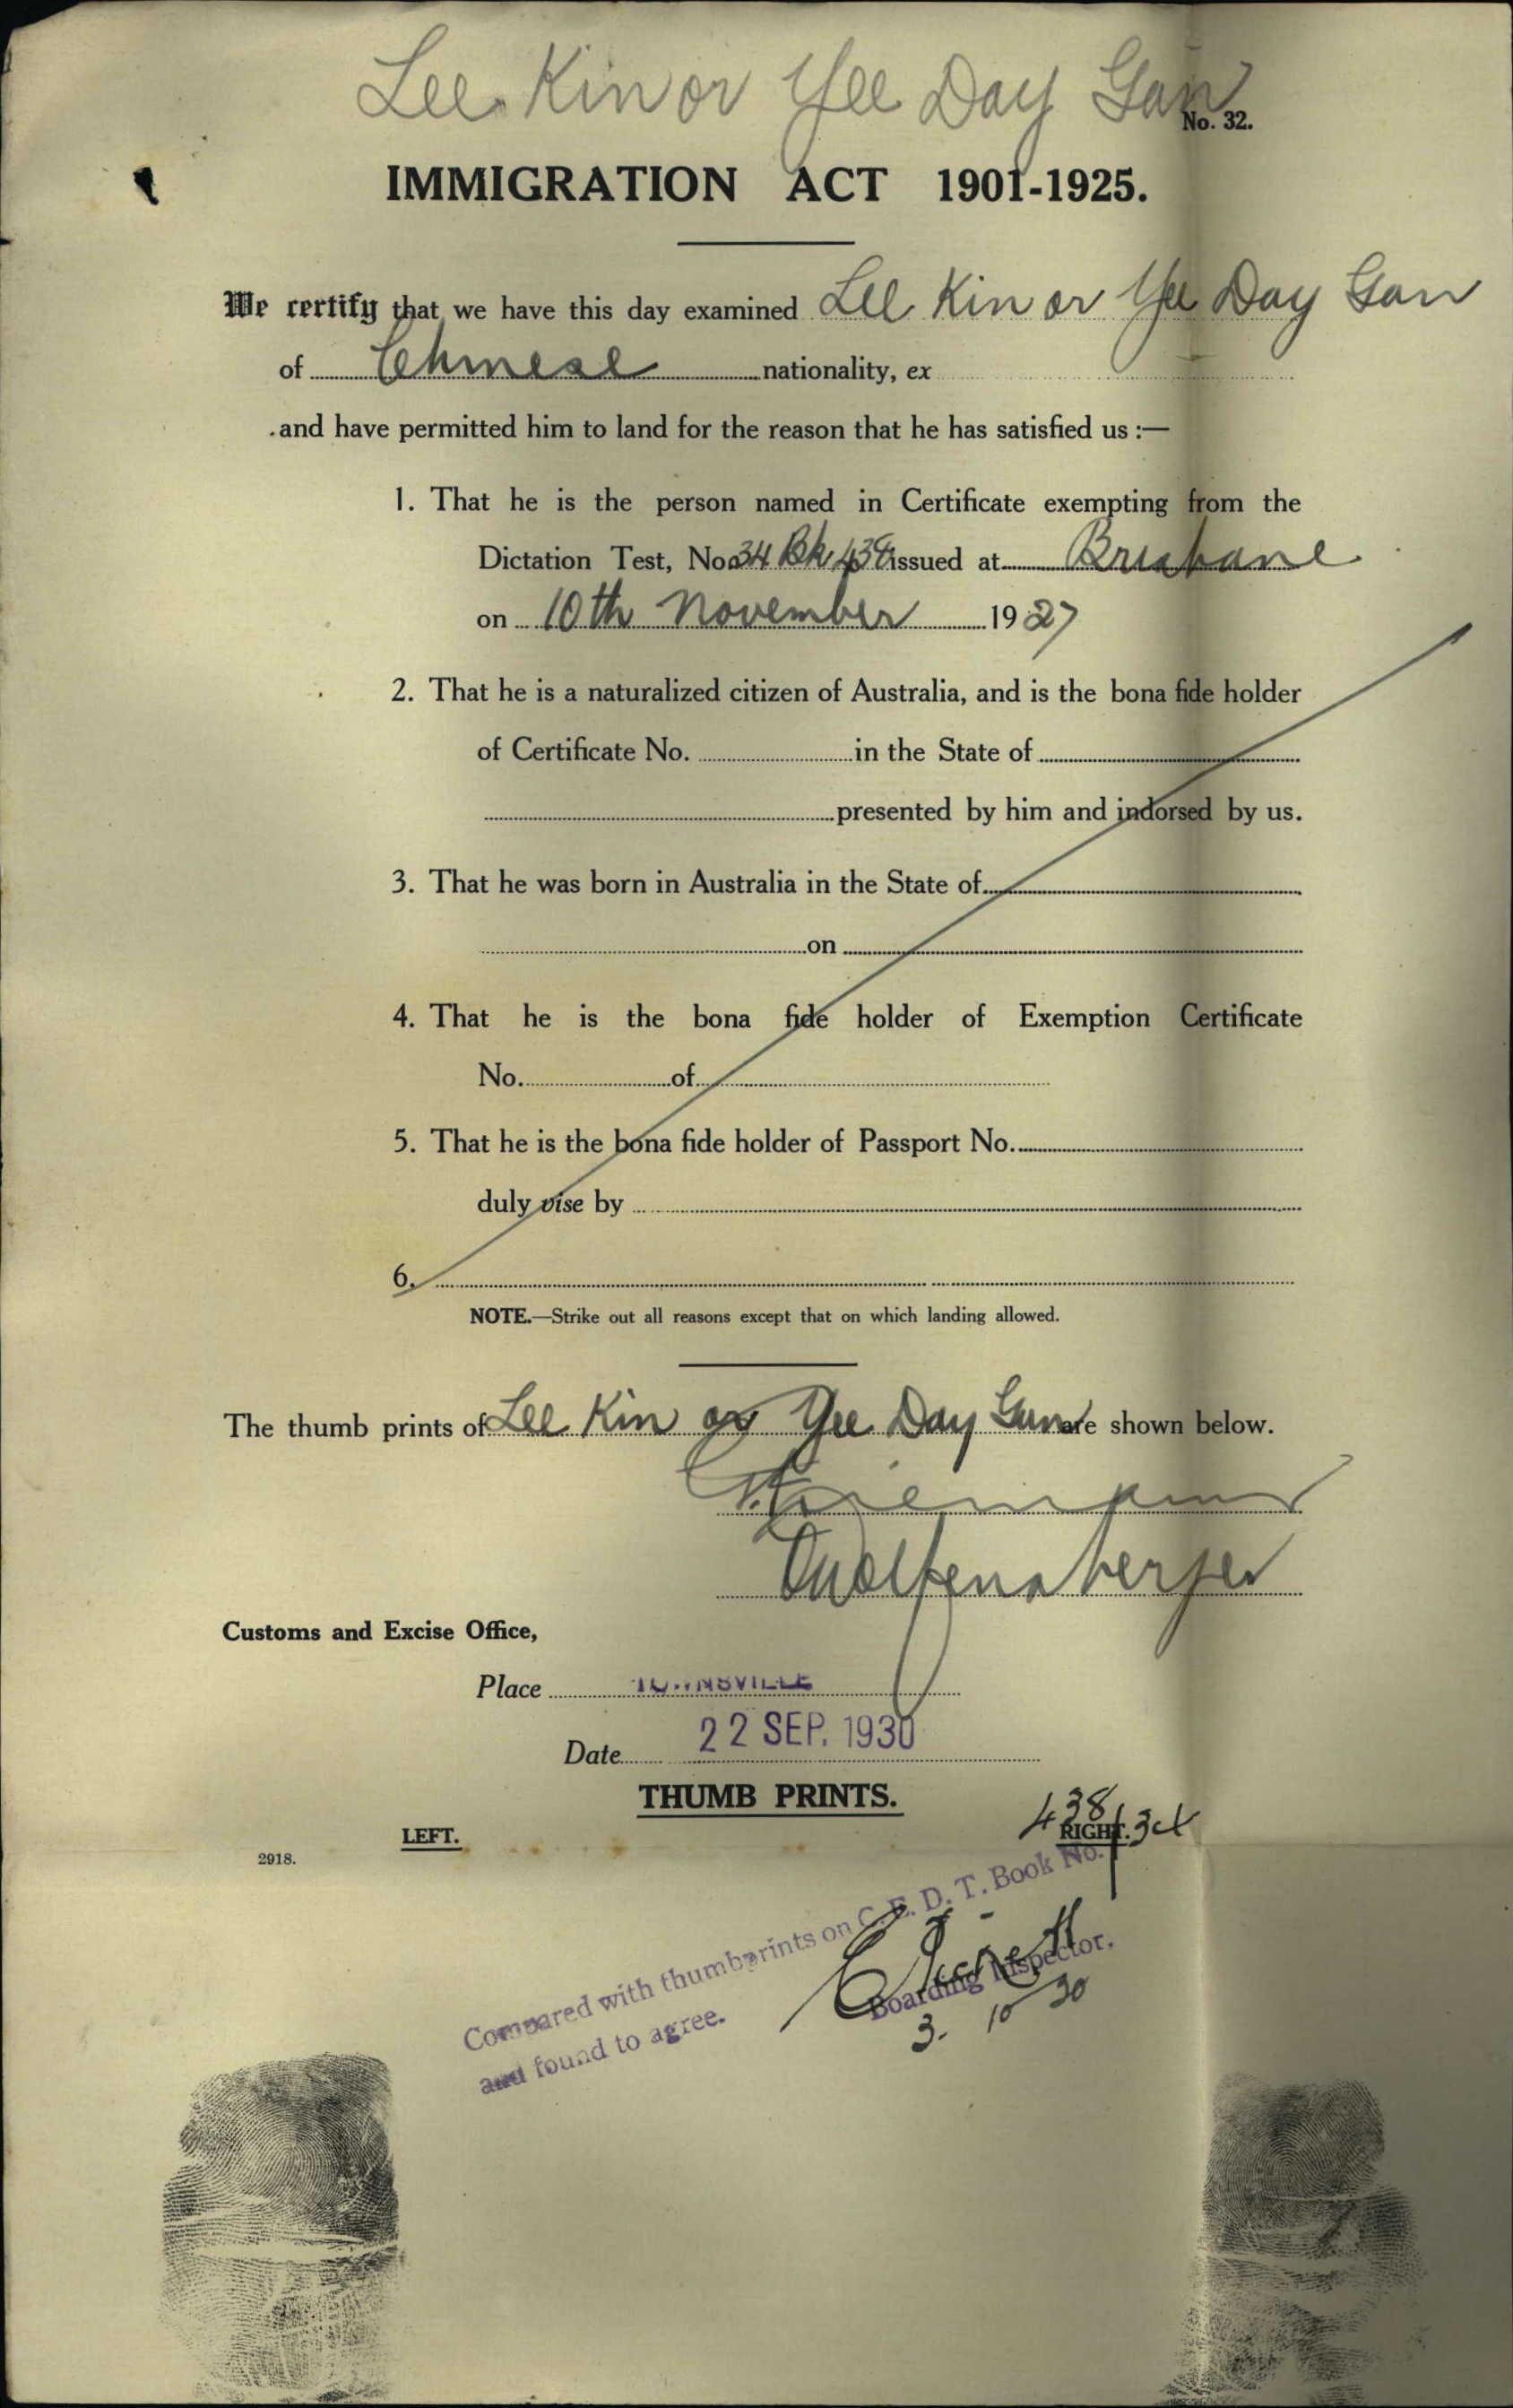 Lee Kin or Yee Day Gan
No. 32.
IMMIGRATION ACT 1901-1925.
We certify that we have this day examined Lee Kin or Yee Day Gan
of Chinese nationality, ex
and have permitted him to land for the reason that he has satisfied us :—
1. That he is the person named in Certificate exempting from the
Dictation Test, No. 34 Bk 438 issued at Brisbane
on 10th November 1927
2. That he is a naturalized citizen of Australia, and is the bona fide holder
of Certificate No. in the State of
presented by him and indorsed by us.
3. That he was born in Australia in the State of
on
4. That he is the bona fide holder of Exemption Certificate
No. of
5. That he is the bona fide holder of Passport No.
duly vise by
6.
NOTE.—Strike out all reasons except that on which landing allowed.
The thumb prints of Lee Kin or Yee Day Gan are shown below.
Customs and Excise Office,
Place TOWNSVILLE
Date 22 SEP. 1930
THUMB PRINTS.
438/34
LEFT. RIGHT.
2918.
Compared with thumbprints on C. E. D. T. Book No.
and found to agree.
Boarding Inspector.
3. 10 30